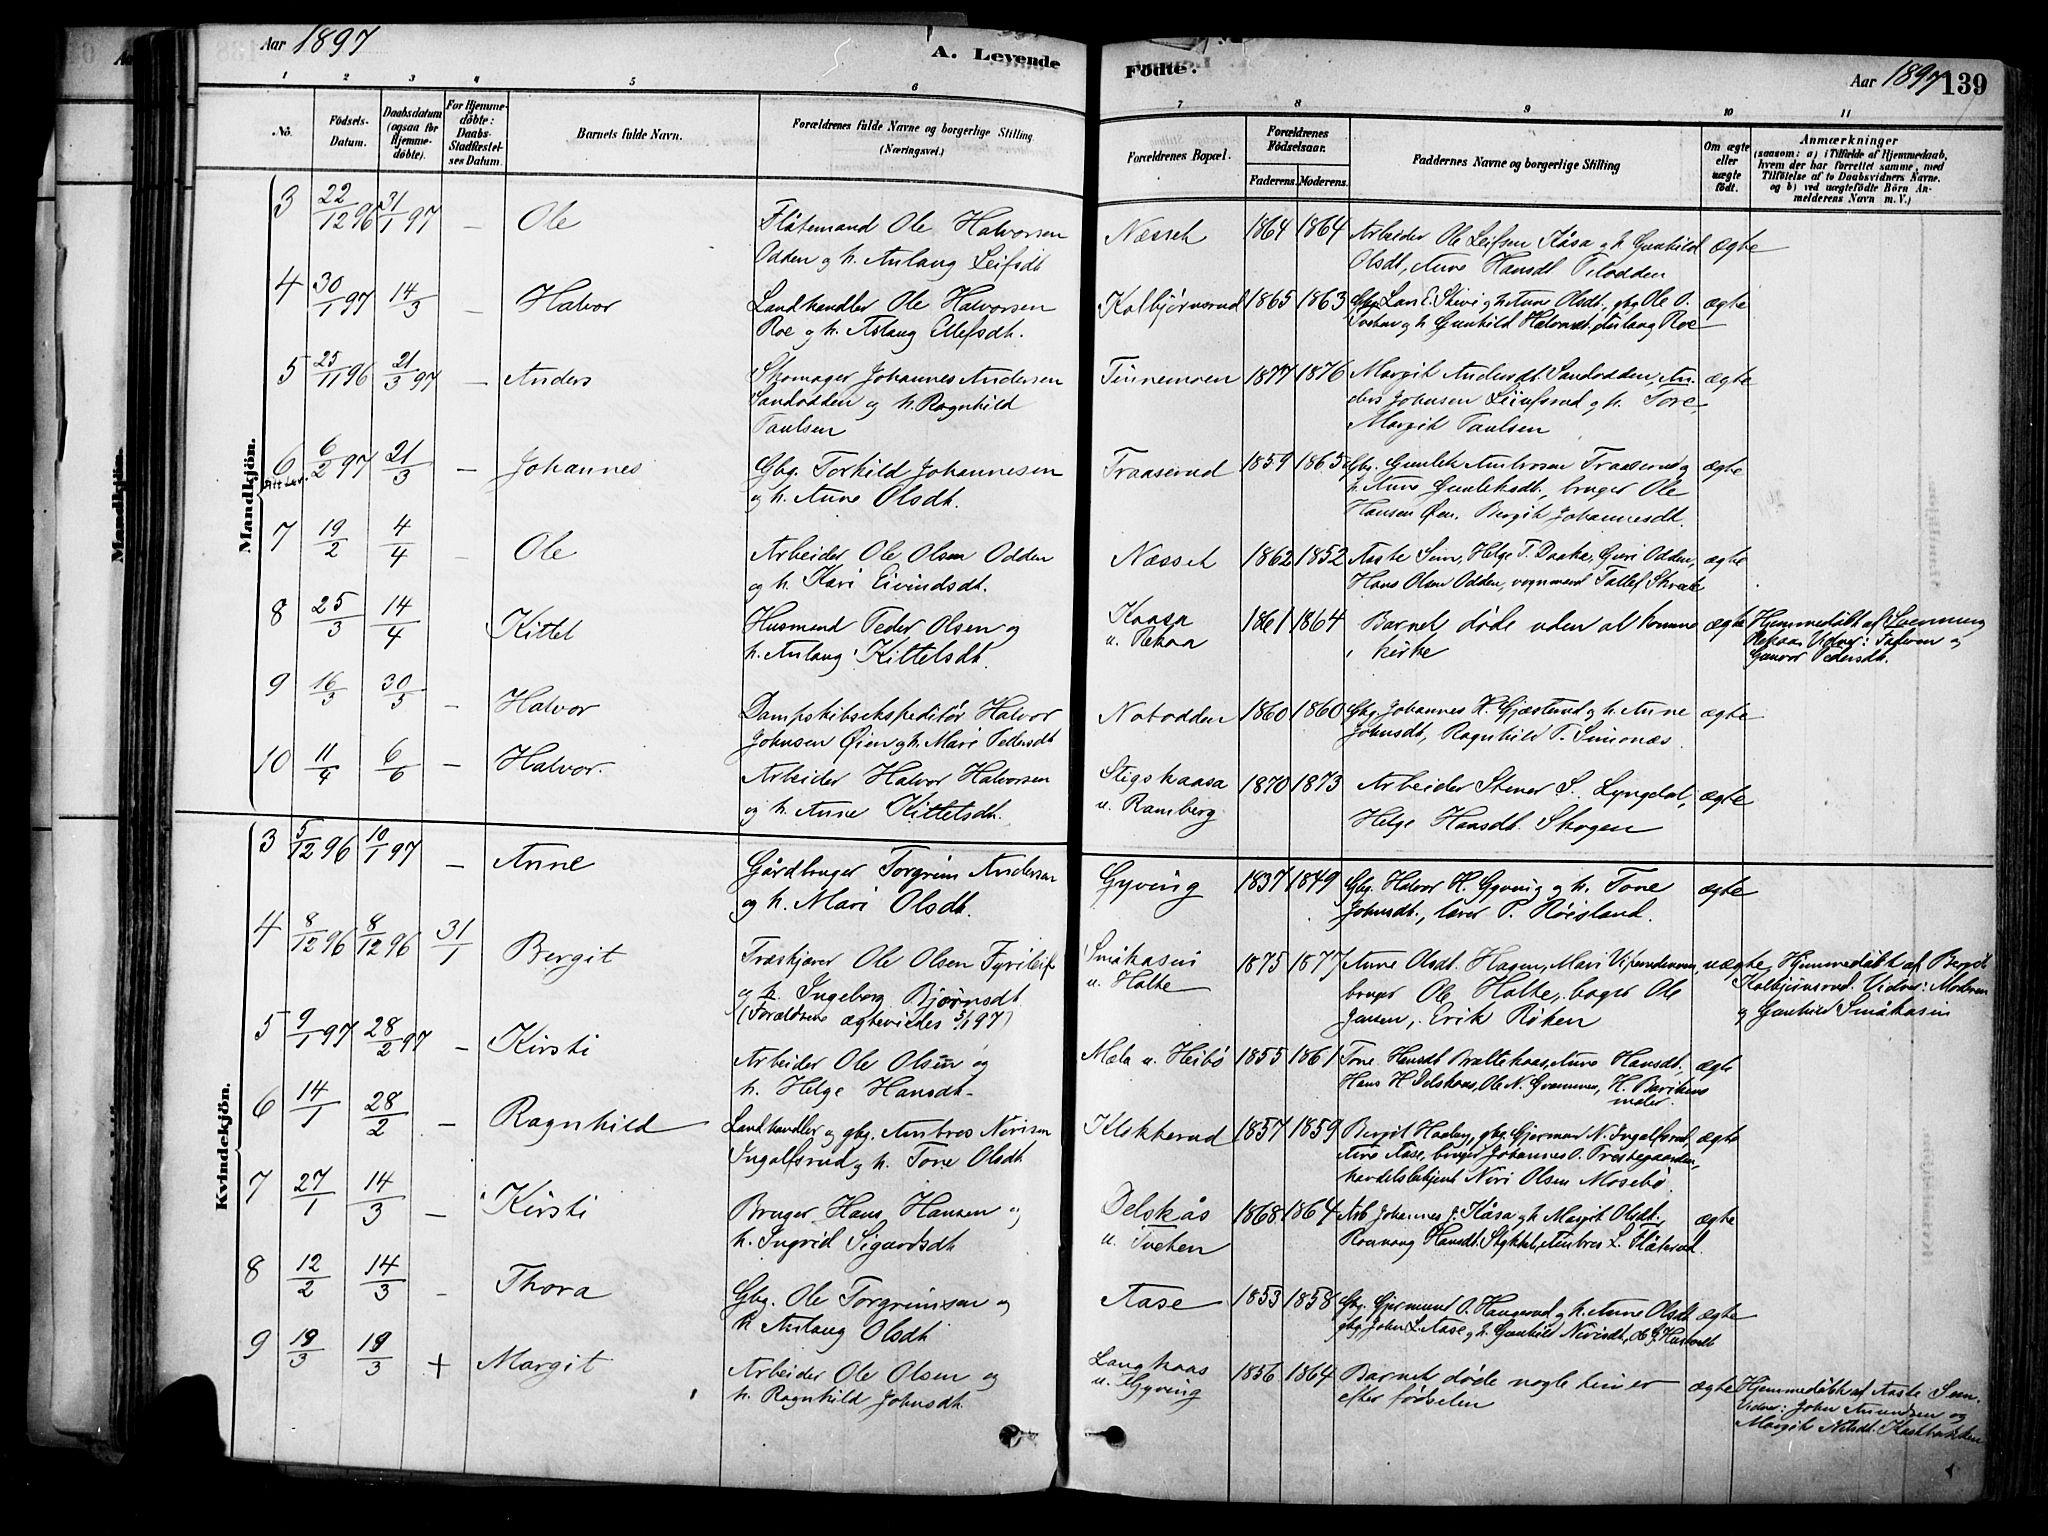 Aar 1897
A. Levende
Fødte.
Aar 1897
139
1 2 3 4 5 6 7 8 9 10 11
No.
Fødsels-
Datum.
Daabsdatum
(ogsaa for
Hjemme-
døbte).
For Hjemme-
døbte:
Daabs-
Stadfæstel-
ses Datum.
Barnets fulde Navn.
Forældrenes fulde Navne og borgerlige Stilling
(Næringsvei.)
Forældrenes Bopæl.
Forældrenes
Fødselsaar.
Faderens. Moderens.
Faddernes Navne og borgerlige Stilling
Om ægte
eller
uægte
født.
Anmærkninger
(saasom: a) i Tilfælde af Hjemmedaab,
hvem der har forrettet samme, med
Tilføielse af to Daabsvidners Navne.
og b) ved uægtefødte Børn An-
melderens Navn m. V.)
Mandkjön.
3 22/12 96 31/1 97 – Ole
Flåtemand Ole Halvorsen
Odden og h. Aslaug Leifsdt
Næsset 1864 1864
Arbeider Ole Leifsen Kåsa og h. Gunhild
Olsdt, Anne Hansdt
ægte
4 30/1 97 14/3 – Halvor
Landhandler Ole Halvorsen
Roe og h. Aslaug Ellefsdt.
Kolbjørnsrud 1865 1863
Gbg. Lars E. og h. Anne Olsdt. gbg Ole O.
Tveten og h. Gunhild Halvorsdt, Aslaug Roe
ægte
5 25/11 96 21/3 97 – Anders
Skomager Johannes Andersen
Sandodden og h. Ragnhild
Paulsen
Tinnemoen 1877 1876
Margit Andersdt. Sandodden, An-
ders Johnsen og h. Tore,
Margit Paulsen
ægte
6 6/2 97 21/3 – Johannes
Gbg. Torkild Johannesen
og h. Anne Olsdt.
Traaserud 1859 1865
Gbg. Gunlek Ambrosen Traaserud og
h. Anne Gunleksdt., bruger Ole
Hansen Øen, Bergit Johannesdt.
ægte
7 19/2 4/4 – Ole
Arbeider Ole Olsen Odden
og h. Kari Eivindsdt.
Næsset 1862 1852
Aaste Sem, Helge T. Guri Odden,
Hans Olsen Odden, vognmand Tallef
ægte
8 25/3 14/4 Kittel
Husmand Peder Olsen og
h. Aslaug Kittelsdt.
Kaasa
u. Rekaa 1861 1864
Barnet døde uden at komme
i kirke
ægte
Hjemmedøbt af Svenning
Rekaa. Vidner: Faderen og
Gunvor Pedersdt.
9 16/3 30/5 – Halvor
Dampskibsekspeditør Halvor
Johnsen Øien og h. Mari Pedersdt
Notodden 1860 1860
Gbg. Johannes H. Gjæsterud og h. Anne
Johnsdt., Ragnhild T. Simonæs.
ægte
10 11/4 6/6 – Halvor.
Arbeider Halvor Halvorsen
og h. Anne Kittelsdt.
Stigskaasa
u. Ramberg. 1870 1873
Arbeider Stener S. Lyngdal,
Helge Hansdt. Skogen
ægte
Kvindekjön.
3 5/12 96 10/1 97 – Anne
Gårdbruger Torgrim Andersen
og h. Mari Olsdt.
Gyving 1837 1849
Gbg. Halvor H. Gyving og h. Tone
Johnsdt., lærer P. Røisland.
ægte
4 8/12 96 8/12 96 31/1 Bergit
Træskjærer Ole Olsen Fyrileif
og h. Ingeborg Bjørnsdt.
(Forældrene ægteviedes 3/1 97)
Småkasin
u. Holte 1875 1877
Anne Olsdt. Hagen, Mari
bruger Ole Holte, bager Ole
Jensen, Erik Røken
uægte
Hjemmedøbt af Bergit
Kolbjørnsrud. Vidner: Moderen
og Gunhild Småkasin
5 9/1 97 28/2 97 – Kirsti
Arbeider Ole Olsen og
h. Helge Hansdt.
Mæla u. Heibø 1855 1861
Tone Hansdt. Anne Hansdt.
Hans H. Delskaas, Ole N.
ægte
6 14/1 28/2 – Ragnhild
Landhandler og gbg. Ambros Nirisen
Ingolfsrud og h. Tone Olsdt.
Klokkerud 1857 1859
Bergit gbg. Gjermund N. Ingolfsrud
Anne Aase, bruger Johannes O. Prestegaarden,
handelsbetjent Niri Olsen Mosebø.
ægte
7 27/1 14/3 – Kirsti
Bruger Hans Hansen og
h. Ingrid Sigurdsdt.
Delskås
u. Tveten 1868 1864
Arb Johannes J. Kåsa og h. Margit Olsdt.
Rønnaug Hansdt. Ambros L. Flåterud.
ægte
8 12/2 14/3 – Thora
Gbg. Ole Torgrimsen og
h. Aslaug Olsdt.
Aase 1853 1858
Gbg. Gjermund O. Haugerud og h. Anne Olsdt
gbg. John L. Aase og h. Gunhild Nirisdt,
ægte
9 19/3 19/3 + Margit
Arbeider Ole Olsen og
h. Ragnhild Johnsdt.
Langkaas
u. Gyving 1856 1864
Barnet døde nogle timer
efter fødselen
ægte
Hjemmedøbt af Aaste Sem.
Vidner: John Amundsen og
Margit Nilsdt.